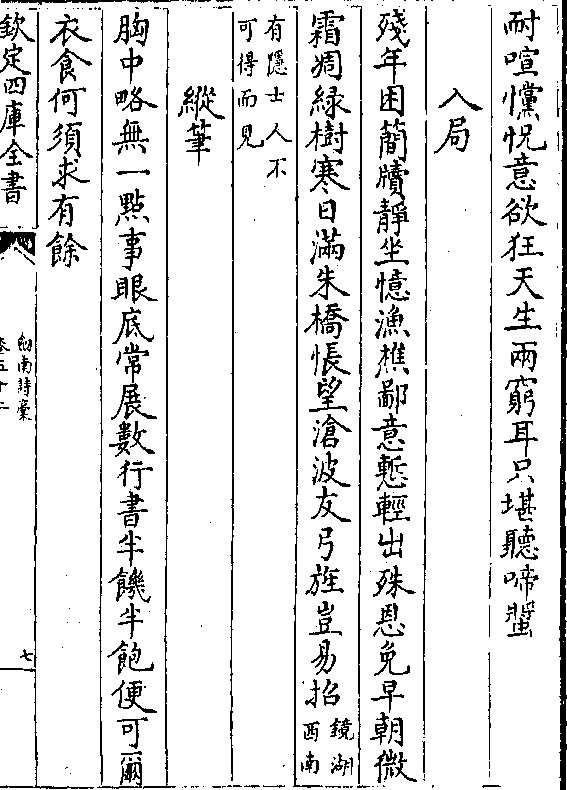 耐喧儻怳意欲狂天生兩窮耳只堪聽啼螿
入局
殘年困蕳牘靜坐憶漁樵鄙意慙輕出殊恩免早朝微
霜凋緑樹寒日滿朱橋悵望滄波友弓旌豈易招鏡湖
西南
有隱士人不
可得而見
縱筆
胸中略無一點事眼底常展數行書半饑半飽便可爾
衣食何須求有餘
欽定四庫全書
劍南詩稾
卷五十二
七